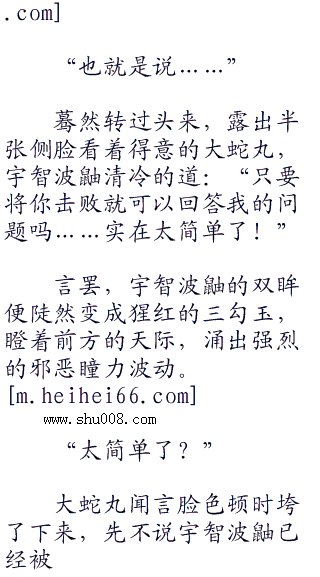 .com]
“也就是说……”
蓦然转过头来，露出半
张侧脸看着得意的大蛇丸，
宇智波鼬清冷的道：“只要
将你击败就可以回答我的问
题吗……实在太简单了！”
言罢，宇智波鼬的双眸
便陡然变成猩红的三勾玉，
瞪着前方的天际，涌出强烈
的邪恶瞳力波动。
[m.heihei66.com]
www.shu008.com
“太简单了？”
大蛇丸闻言脸色顿时垮
了下来，先不说宇智波鼬已
经被